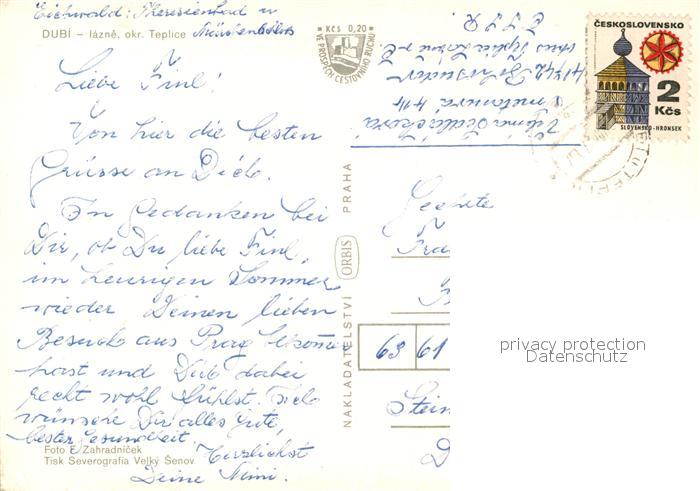 Eichwald: Theresienbad u
DUBÍ – lázně, okr. Teplice
Liebe Finl!
Von hier die besten
Grüsse an Dich.
In Gedanken bei
Dir, ob Du liebe Finl,
im heurigen Sommer
wieder Deinen lieben
Besuch aus Prag bekommen
hast und Dich dabei
recht wohl fühlst. Ich
wünsche Dir alles Gute,
beste Gesundheit.
Herzlichst
Deine Mimi.
Foto F. Zahradníček
Tisk Severografia Velký Šenov
Kčs 0,20
VE PROSPĚCH CESTOVNÍHO RUCHU
NAKLADATELSTVÍ ORBIS PRAHA
ČESKOSLOVENSKO
2
Kčs
SLOVENSKO-HRONSEK
Č S S R
Geehrte
Fra
63 61
Stein
D
privacy protection
Datenschutz